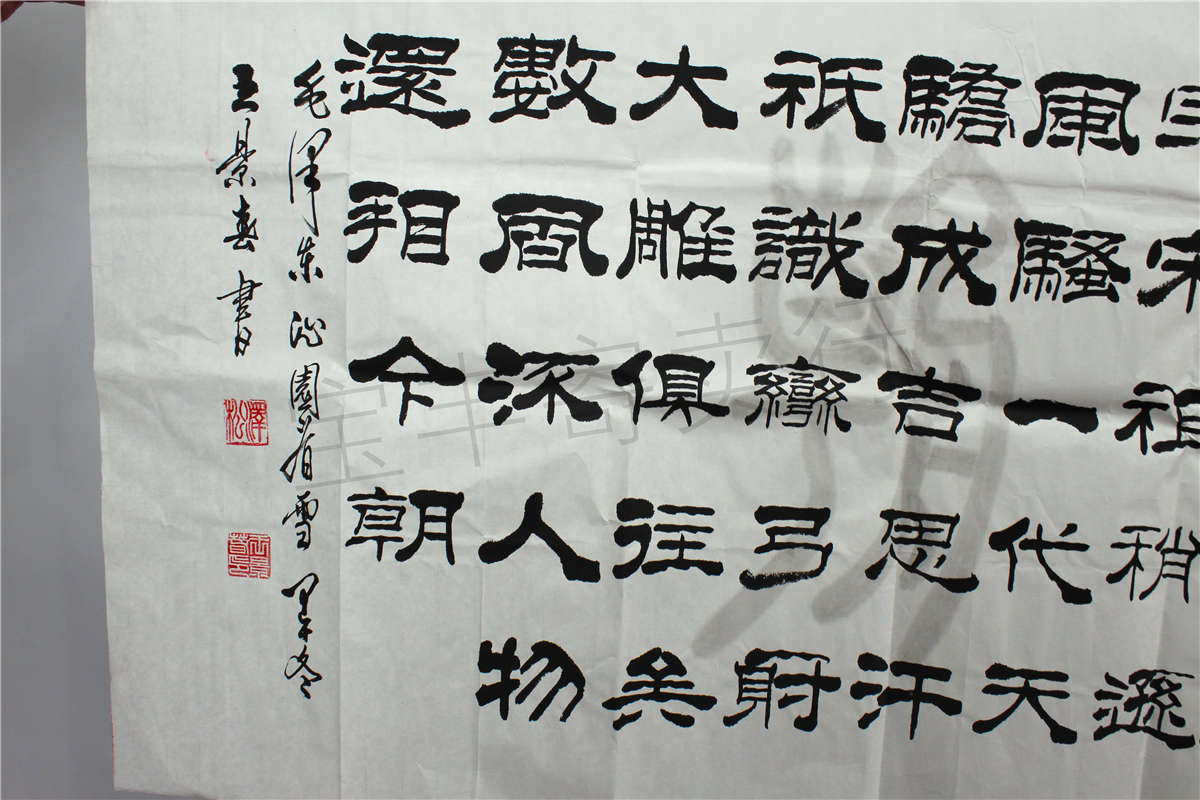 宋祖稍遜
風騷一代天
驕成吉思汗
祇識彎弓射
大雕俱往矣
數風流人物
還看今朝
毛澤东沁園春雪 冬
王景春書
澤松
宝丰寄卖行